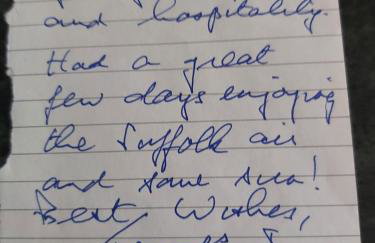 and hospitality.
Had a great
few days enjoying
the Suffolk air
and some sun!
Best Wishes,